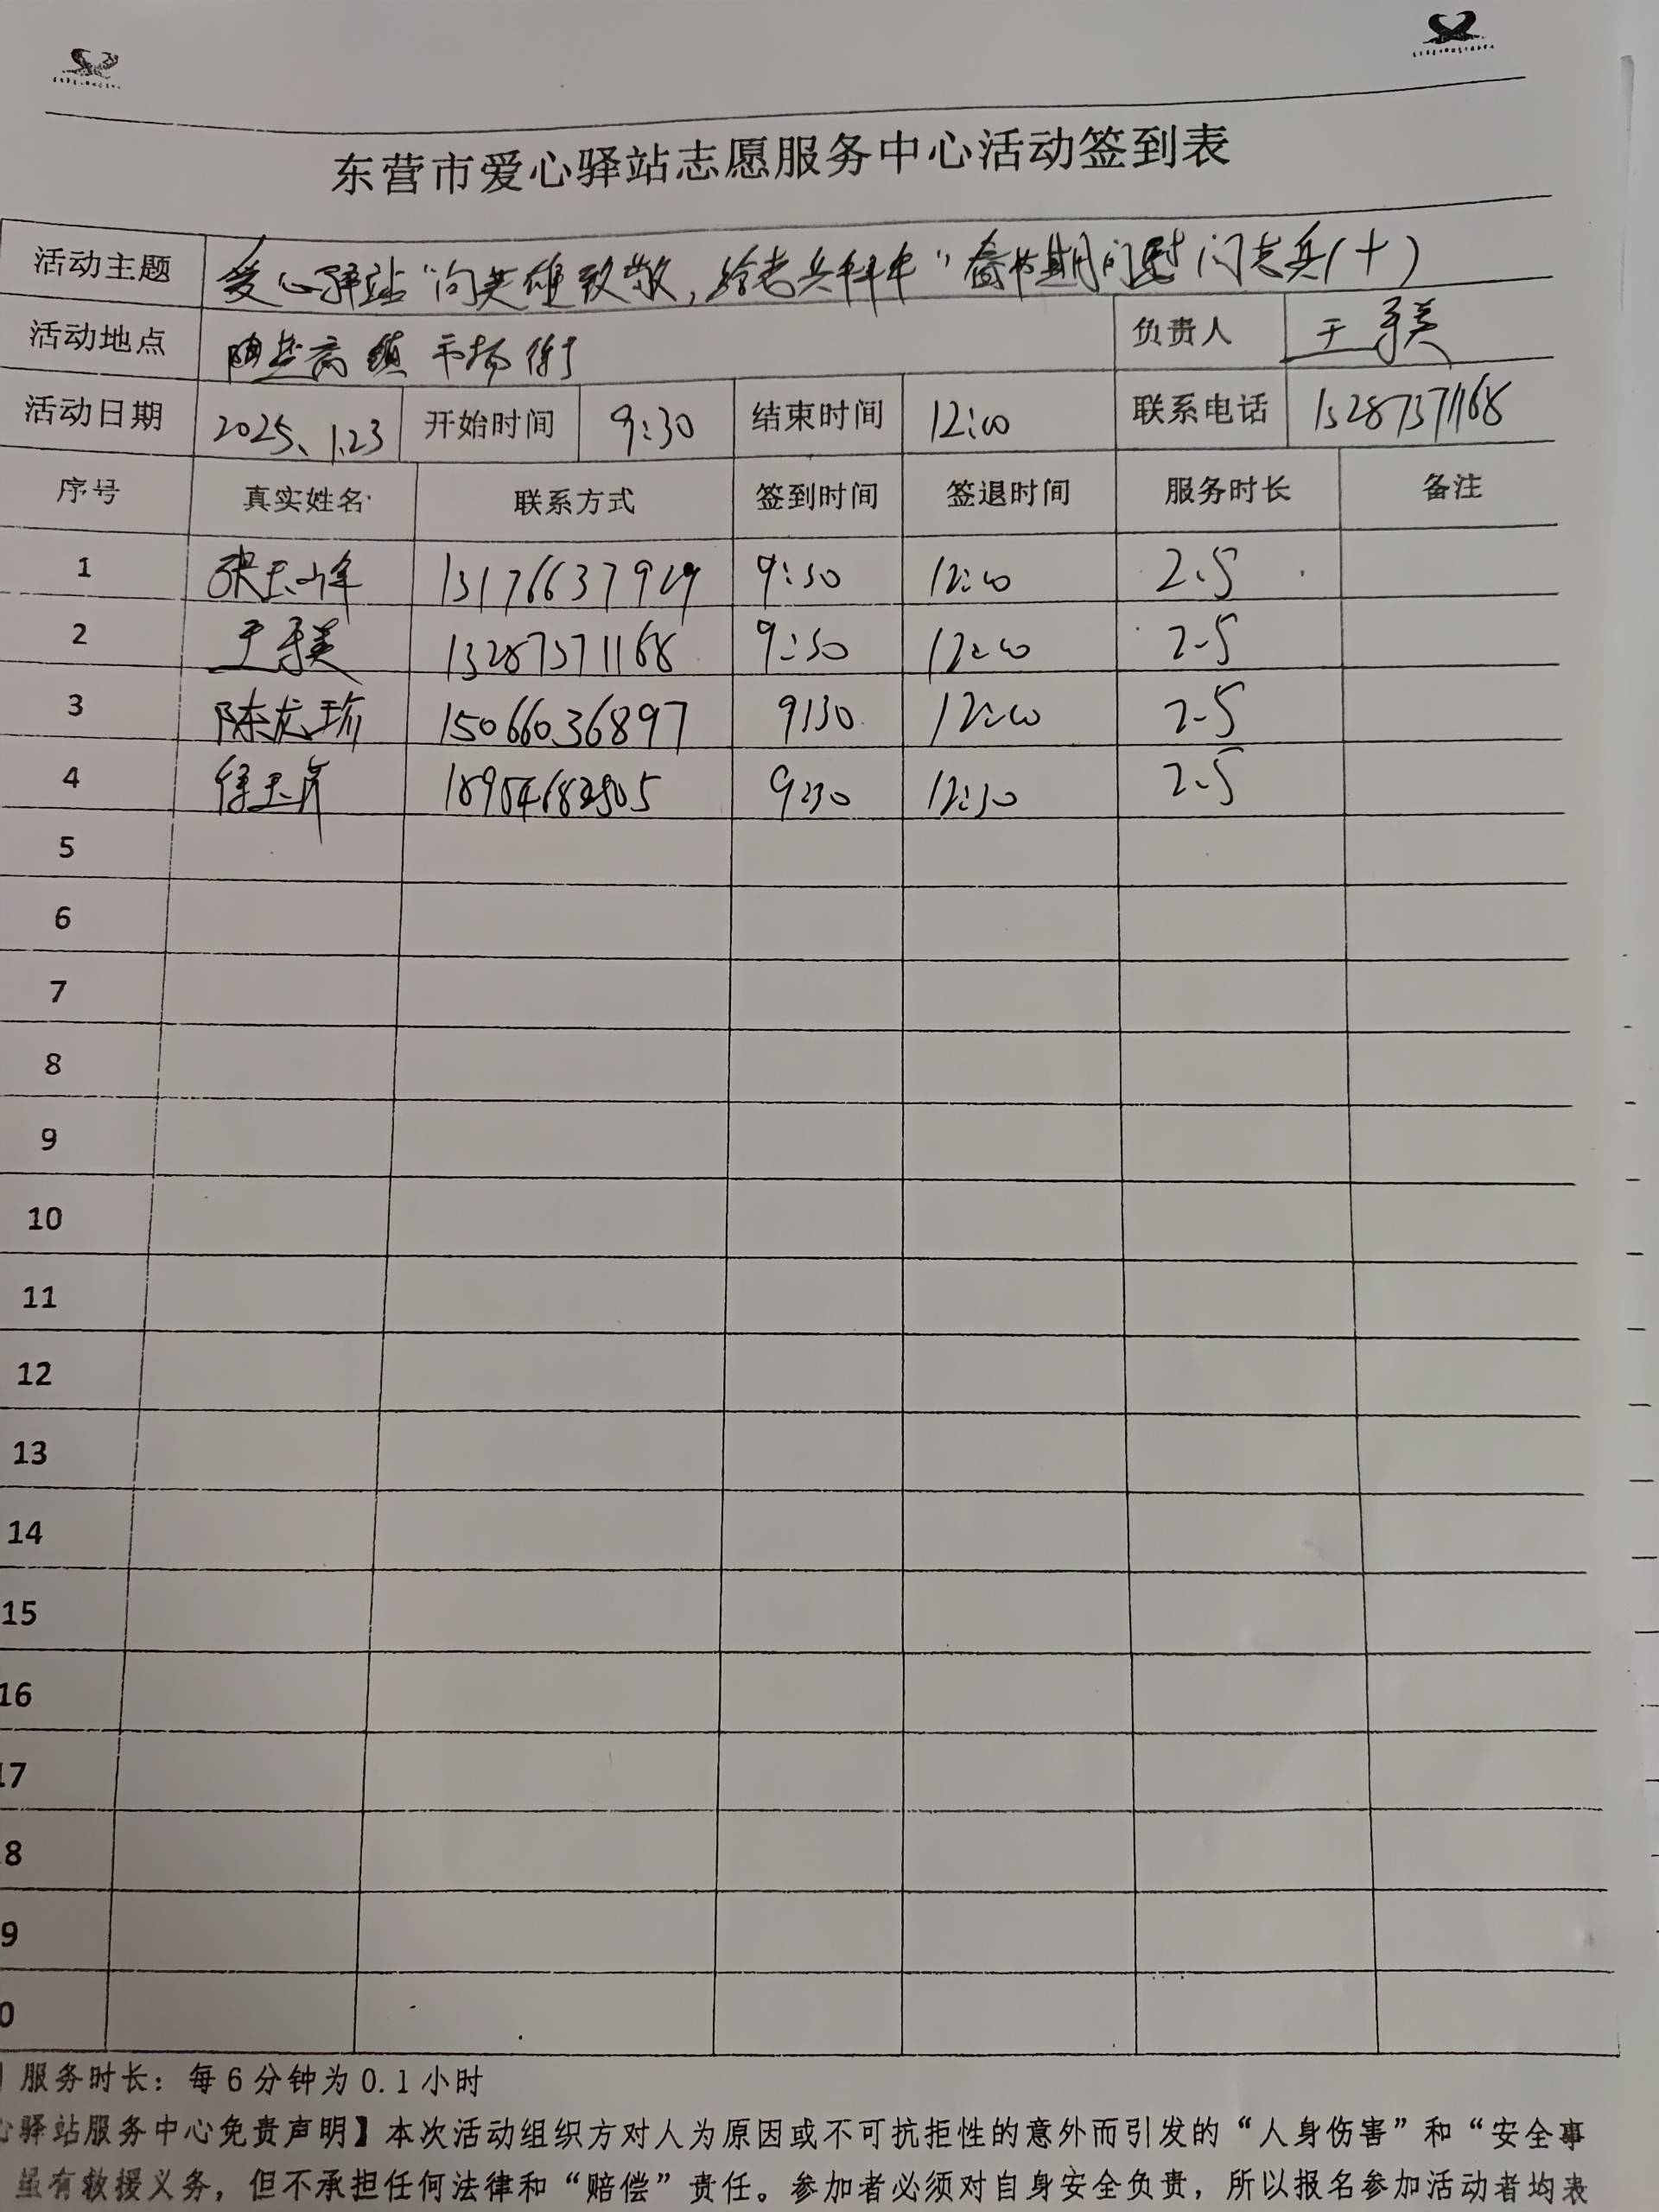 东营市爱心驿站志愿服务中心活动签到表
活动主题 爱心驿站“向英雄致敬，给老兵拜年”春节期间慰问老兵（十）
活动地点 陈庄 镇 市场街 负责人 于 美
活动日期 2025、1.23 开始时间 9:30 结束时间 12:00 联系电话 13287371168
序号 真实姓名 联系方式 签到时间 签退时间 服务时长 备注
1 张玉峰 13176637929 9:30 12:00 2.5
2 于 美 13287371168 9:30 12:00 2.5
3 陈龙 15066036897 9:30 12:00 2.5
4 徐玉 9:30 12:30 2.5
5
6
7
8
9
10
11
12
13
14
15
16
17
8
9
0
服务时长：每6分钟为0.1小时
心驿站服务中心免责声明】本次活动组织方对人为原因或不可抗拒性的意外而引发的“人身伤害”和“安全事
虽有救援义务，但不承担任何法律和“赔偿”责任。参加者必须对自身安全负责，所以报名参加活动者均表